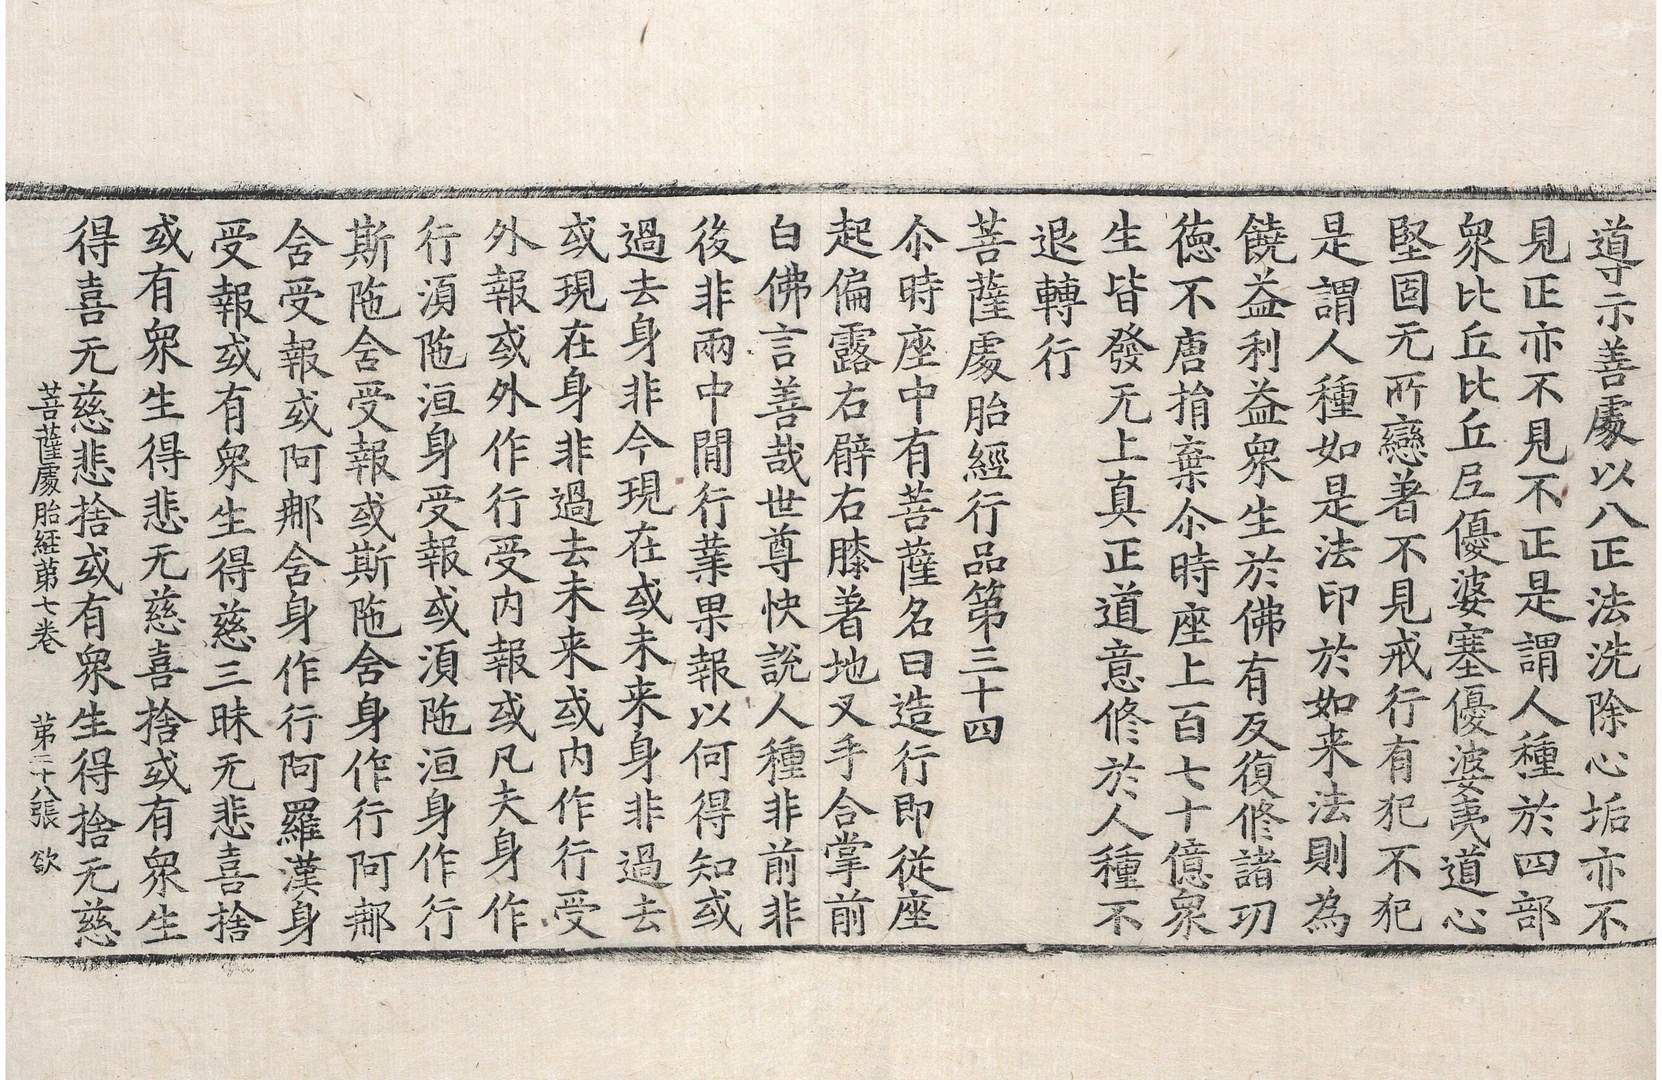 導示善處以八正法洗除心垢亦不
見正亦不見不正是謂人種於四部
衆比丘比丘尼優婆塞優婆夷道心
堅固无所戀著不見戒行有犯不犯
是謂人種如是法印於如来法則為
饒益利益衆生於佛有反復修諸功
德不唐捐棄尒時座上百七十億衆
生皆發无上真正道意修於人種不
退轉行
菩薩處胎經行品第三十四
尒時座中有菩薩名曰造行即從座
起偏露右臂右膝著地叉手合掌前
白佛言善哉世尊快說人種非前非
後非兩中間行業果報以何得知或
過去身非今現在或未来身非過去
或現在身非過去未来或内作行受
外報或外作行受内報或凡夫身作
行湏陁洹身受報或湏陁洹身作行
斯陁含受報或斯陁含身作行阿那
含受報或阿那含身作行阿羅漢身
受報或有衆生得慈三昧无悲喜捨
或有衆生得悲无慈喜捨或有衆生
得喜无慈悲捨或有衆生得捨无慈
菩薩處胎経第七卷 第二十八張 欲